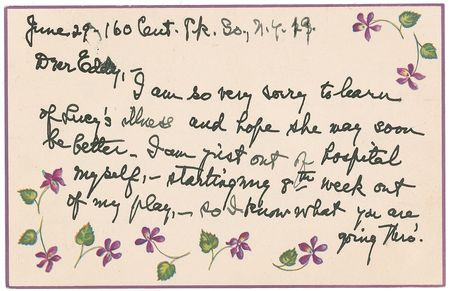 June 29, 160 Cent. Pk. So., N.Y. 19.
Dear Eddy,-
I am so very sorry to learn
of Lucy's illness and hope she may soon
be better - I am just out of hospital
myself, - starting my 8th week out
of my play, - so I know what you are
going thro'.